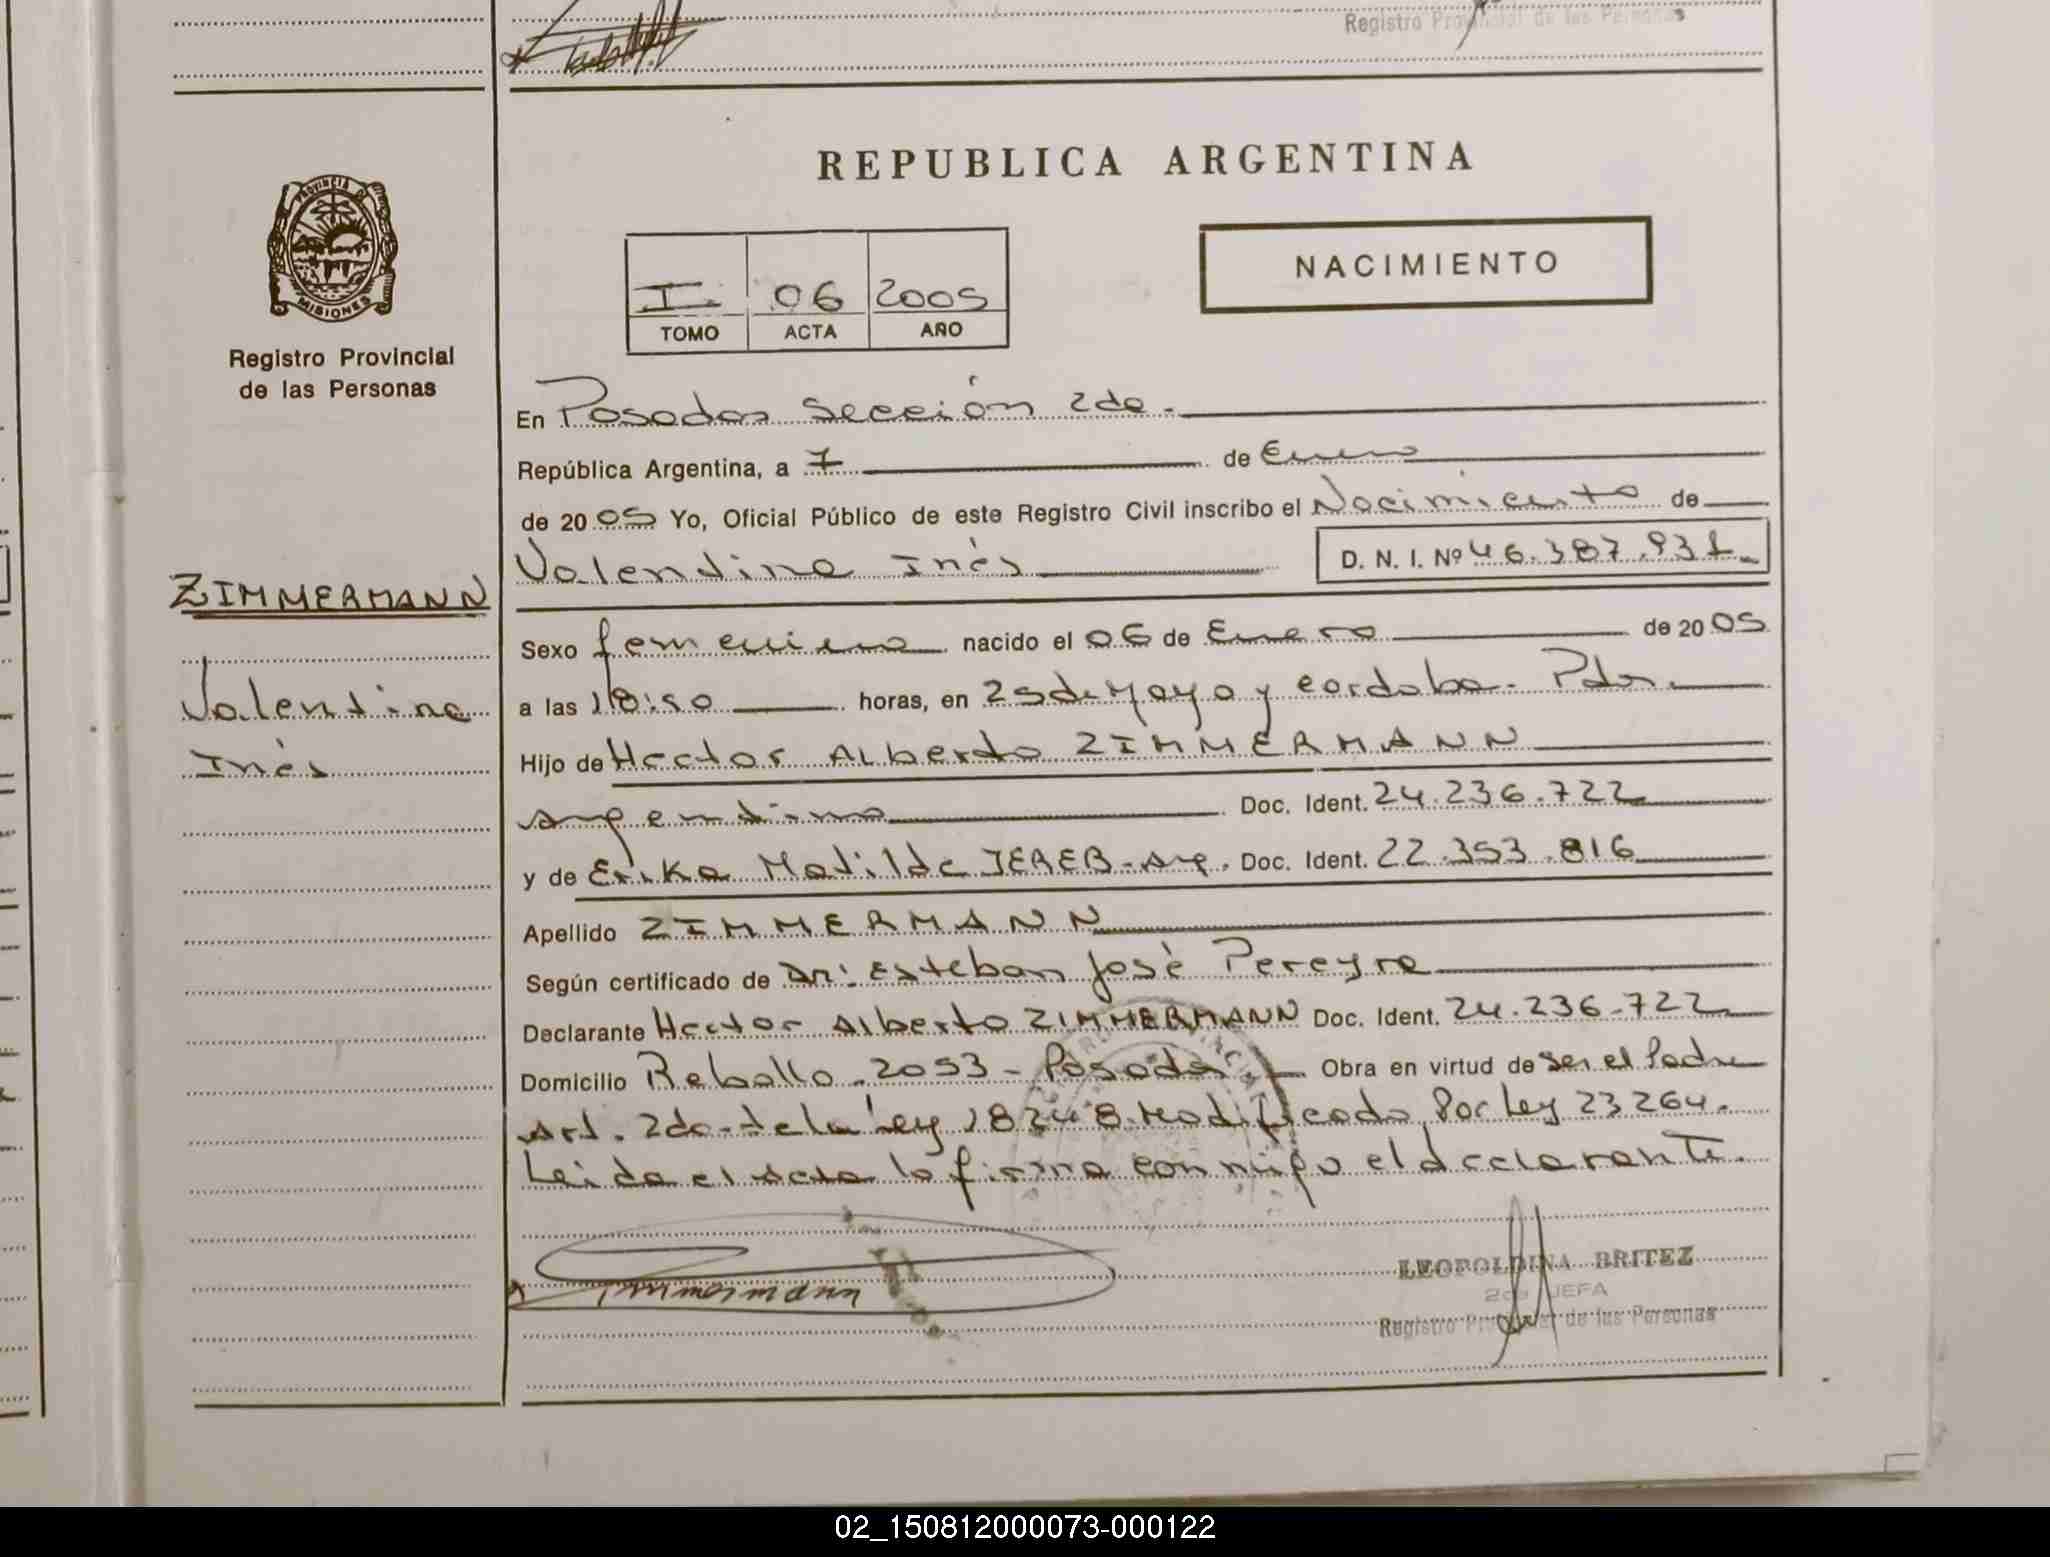 Registro Provincial de las Personas
REPUBLICA ARGENTINA
PROVINCIA DE
MISIONES
Registro Provincial
de las Personas
I. 06 2005
TOMO ACTA AÑO
NACIMIENTO
En Posadas Sección 2da.
República Argentina, a 7 de Enero
de 2005 Yo, Oficial Público de este Registro Civil inscribo el Nacimiento de
Valentina Inés D. N. I. Nº 46.387.931
ZIMMERMANN
Valentina
Inés
Sexo femenino nacido el 06 de Enero de 2005
a las horas, en 25 de Mayo y cordoba. Pdas.
Hijo de Hector Alberto ZIMMERMANN
argentino Doc. Ident. 24.236.722
y de Erika Matilde JEREB - Arg. Doc. Ident. 22.353.816
Apellido ZIMMERMANN
Según certificado de Dr: Esteban José Pereyra
Declarante Hector Alberto ZIMMERMANN Doc. Ident. 24.236.722
Domicilio Rebollo 2053 - Posadas. Obra en virtud de ser el Padre
Art. 2do. de la Ley 18248 Modificado Por Ley 23264.
Leida el acta la firma conmigo el declarante.
Zimmermann
LEOPOLDINA BRITEZ
2da JEFA
Registro Provincial de las Personas
02_150812000073-000122